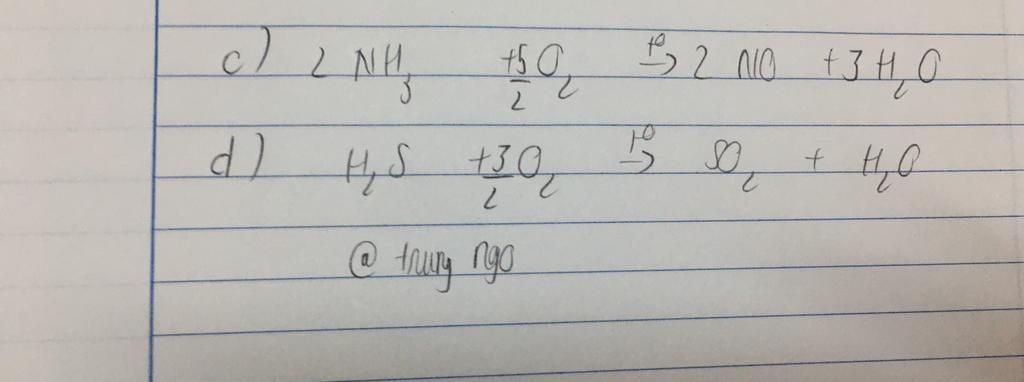 c) 2 NH₃ + 5/2 O₂ →(t⁰) 2 NO + 3 H₂O
d) H₂S + 3/2 O₂ →(t⁰) SO₂ + H₂O
@ trung ngo